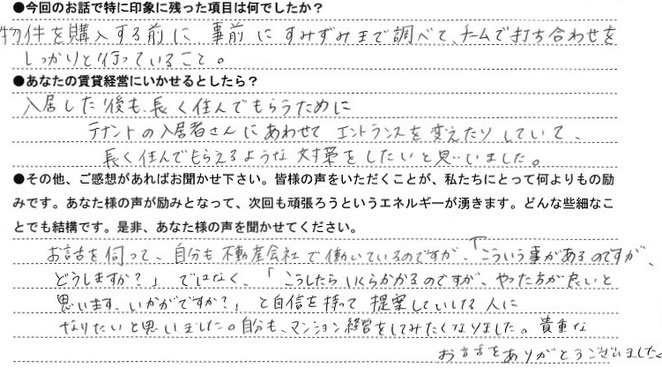 ●今回のお話で特に印象に残った項目は何でしたか？
物件を購入する前に、事前にすみずみまで調べて、チームで打ち合わせを
しっかりと行っていること。
●あなたの賃貸経営にいかせるとしたら？
入居した後も、長く住んでもらうために
テナントの入居者さんにあわせてエントランスを変えたりしていて、
長く住んでもらえるような対策をしたいと思いました。
●その他、ご感想があればお聞かせ下さい。皆様の声をいただくことが、私たちにとって何よりもの励
みです。あなた様の声が励みとなって、次回も頑張ろうというエネルギーが湧きます。どんな些細なこ
とでも結構です。是非、あなた様の声を聞かせてください。
お話を伺って、自分も不動産会社で働いているのですが、「こういう事があるのですが、
どうしますか？」ではなく、「こうしたらいくらかかるのですが、やった方が良いと
思います、いかがですか？」と自信を持って提案していける人に
なりたいと思いました。自分も、マンション経営をしてみたくなりました。貴重な
お話をありがとうございました。